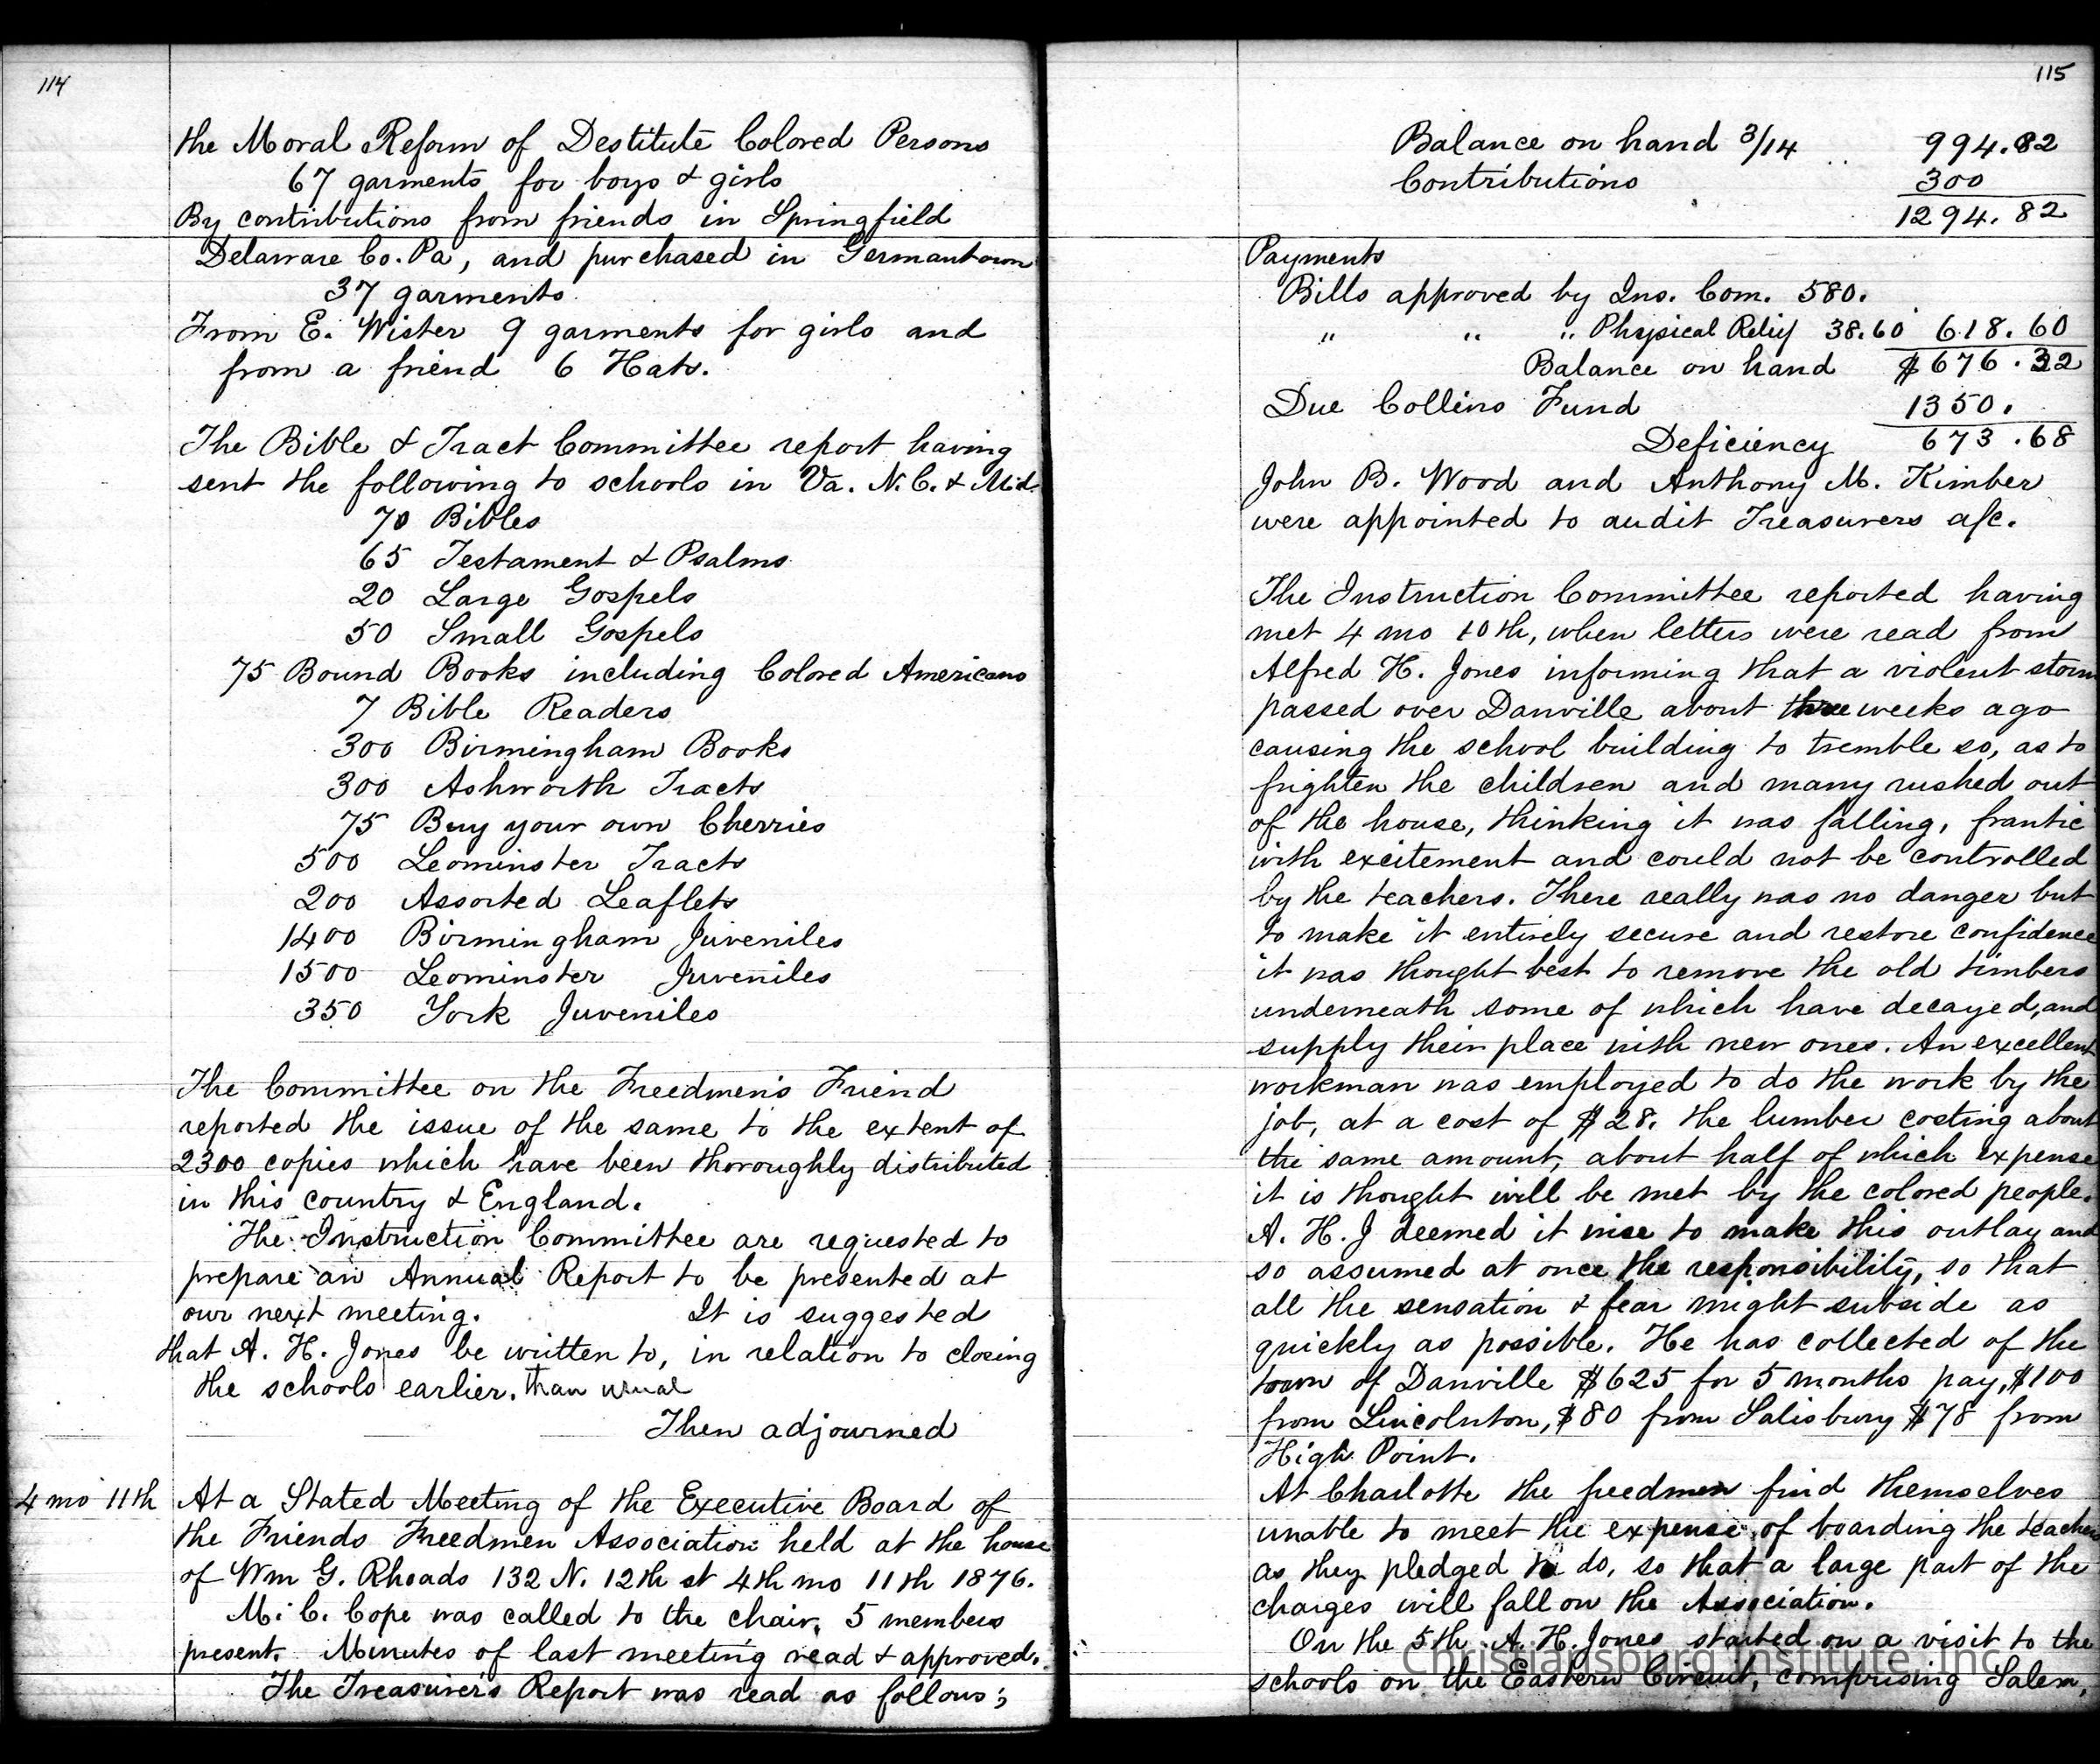 114
the Moral Reform of Destitute Colored Persons
67 garments for boys & girls
By contributions from friends in Springfield
Delaware Co. Pa, and purchased in Germantown
37 garments
From E. Wister 9 garments for girls and
from a friend 6 Hats.
The Bible & Tract Committee report having
sent the following to schools in Va. N.C. & Md.
70 Bibles
65 Testament & Psalms
20 Large Gospels
50 Small Gospels
75 Bound Books including Colored Americans
7 Bible Readers
300 Birmingham Books
300 Ashworth Tracts
75 Buy your own Cherries
500 Leominster Tracts
200 Assorted Leaflets
1400 Birmingham Juveniles
1500 Leominster Juveniles
350 York Juveniles
The Committee on the Freedmen's Friend
reported the issue of the same to the extent of
2300 copies which have been thoroughly distributed
in this country & England.
The Instruction Committee are requested to
prepare an Annual Report to be presented at
our next meeting. It is suggested
that A. H. Jones be written to, in relation to closing
the schools earlier. than usual
Then adjourned
4 mo 11th At a Stated Meeting of the Executive Board of
the Friends Freedmen Association held at the house
of Wm G. Rhoads 132 N. 12th st 4th mo 11th 1876.
M. C. Cope was called to the chair. 5 members
present. Minutes of last meeting read & approved.
The Treasurer's Report was read as follows;
115
Balance on hand 3/14 .. 994.82
Contributions 300
1294.82
Payments
Bills approved by Ins. Com. 580.
" " " Physical Relief 38.60 618.60
Balance on hand $676.32
Due Collins Fund 1350.
Deficiency 673.68
John B. Wood and Anthony M. Kimber
were appointed to audit Treasurers a/c.
The Instruction Committee reported having
met 4 mo 10th, when letters were read from
Alfred H. Jones informing that a violent storm
passed over Danville about three weeks ago
causing the school building to tremble so, as to
frighten the children and many rushed out
of the house, thinking it was falling, frantic
with excitement and could not be controlled
by the teachers. There really was no danger but
to make it entirely secure and restore confidence
it was thought best to remove the old timbers
underneath some of which have decayed, and
supply their place with new ones. An excellent
workman was employed to do the work by the
job, at a cost of $28. the lumber costing about
the same amount, about half of which expense
it is thought will be met by the colored people.
A. H. J deemed it wise to make this outlay and
so assumed at once the responsibility, so that
all the sensation & fear might subside as
quickly as possible. He has collected of the
town of Danville $625 for 5 months pay, $100
from Lincolnton, $80 from Salisbury $78 from
High Point.
At Charlotte the freedmen find themselves
unable to meet the expense of boarding the teacher
as they pledged to do, so that a large part of the
charges will fall on the Association.
On the 5th A. H. Jones started on a visit to the
schools on the Eastern Circuit, comprising Salem,
Christiansburg Institute, Inc.